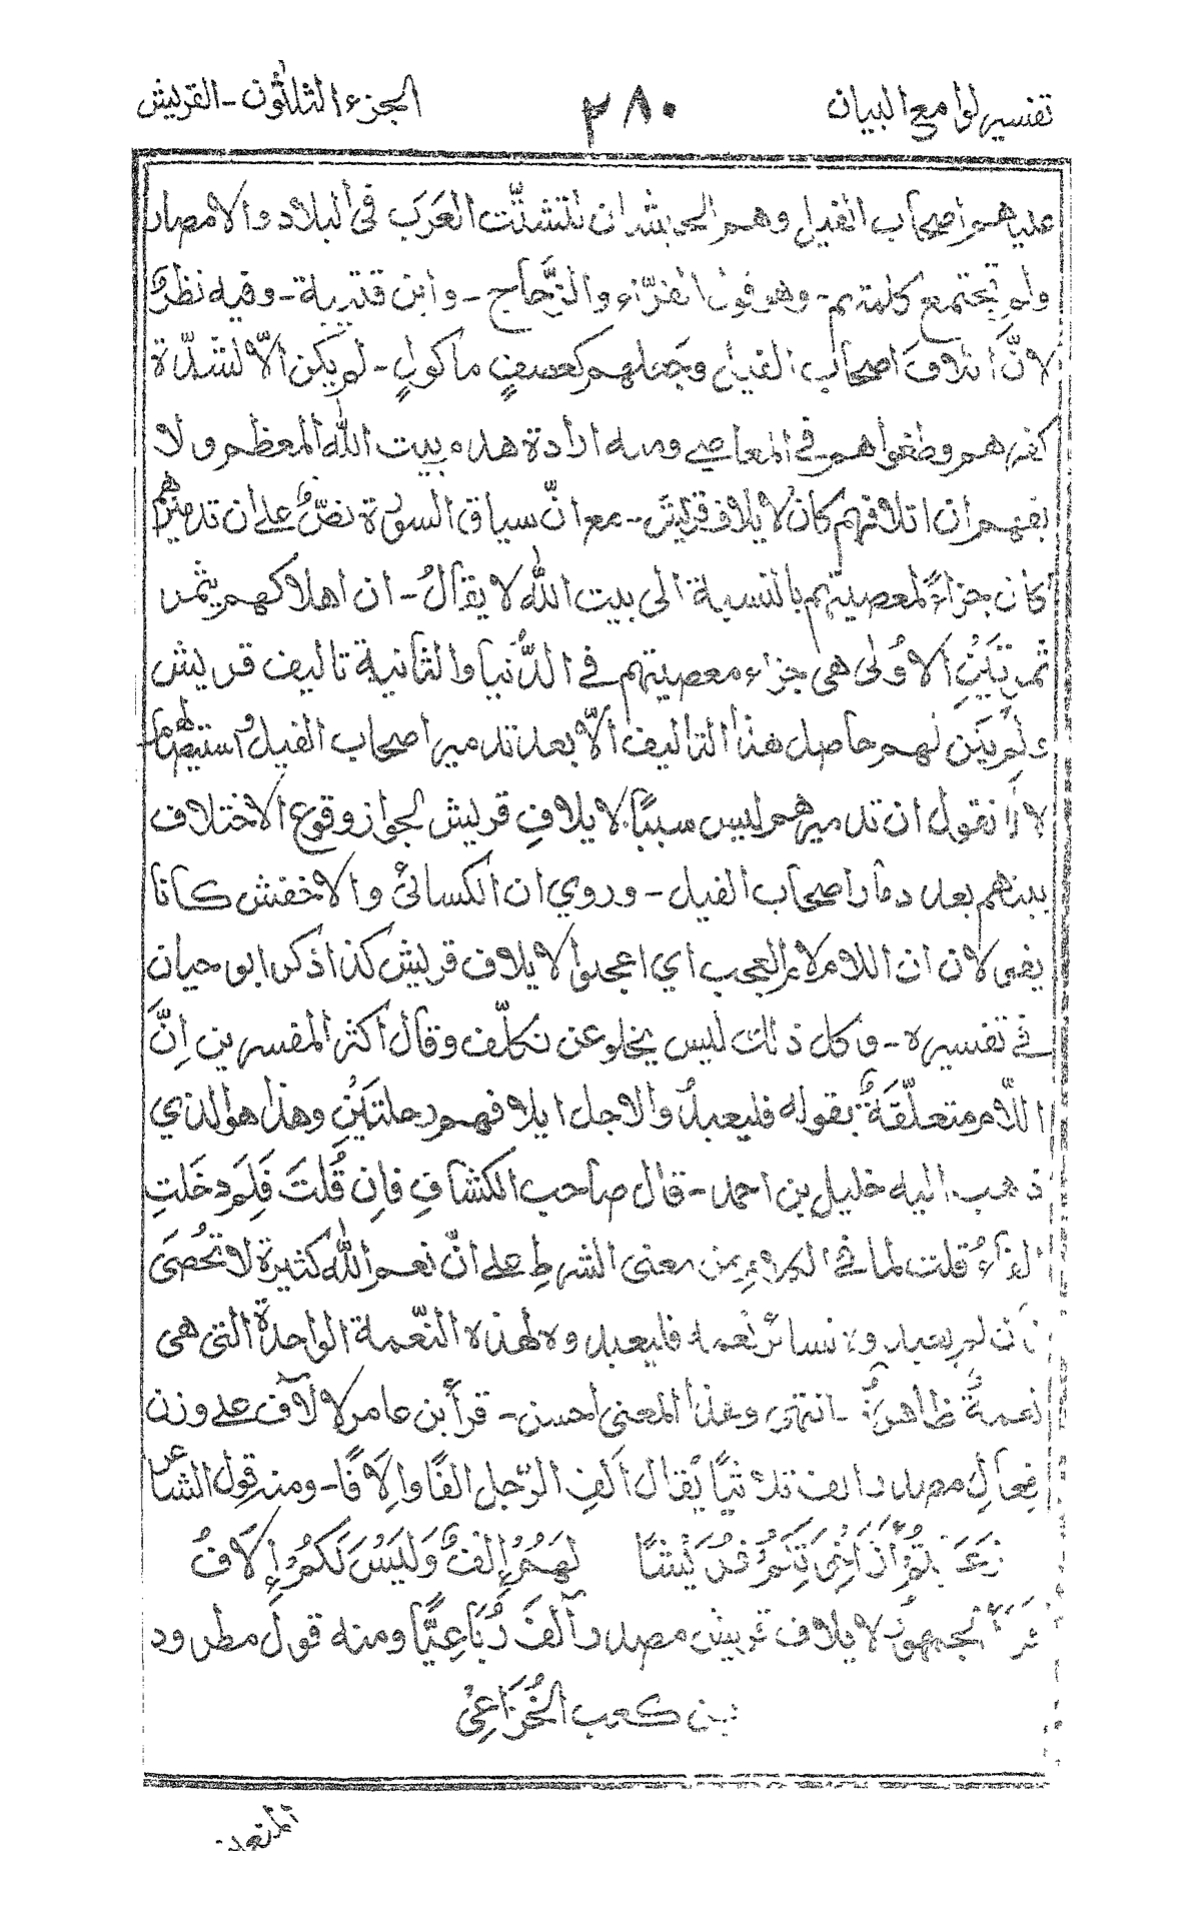 تفسير لوامع البيان ٢٨٠ الجزء الثلاثون - القريش
عليها هم اصحاب الفيل وهم الحبشة ان لتشتّت العَرَب في البلاد والامصار
ولم تجتمع كلمتهم - وهو قول الفرّاء والزَّجاج - وابن قتيبة - وفيه نظرٌ
لانَّ اتلافَ اصحاب الفيل وجعلهم كعصفٍ ماكولٍ - لم يكن الّا لشدّة
كفرهم وطغواهم في المعاصي ومنه ارادة هدم بيت الله المعظم ولا
يفهم ان اتلافهم كان لايلاف قريش - مع انّ سياق السورة نصٌّ على ان تدميرهم
كان جزاءً لمعصيتهم بالنسبة الى بيت الله لا يقالُ - ان اهلاكهم يثمر
ثمرتَيْنِ الاُولى هي جزاء معصيتهم في الدُّنيا والثانية تاليف قريش
ولم يكن لهم حاصل هذا التاليف الّا بعد تدمير اصحاب الفيل
لانا نقول ان تدميرهم ليس سببًا لايلافِ قريش لجواز وقوع الاختلاف
بينهم بعد دمار اصحاب الفيل - وروي ان الكسائي والاخفش كانا
يقولان ان اللام لام العجب اي اعجبوا لايلاف قريش كذا ذكر ابو حيان
في تفسيره - وكل ذلك ليس يخلو عن تكلّف وقال اكثر المفسرين اِنَّ
اللّام متعلّقَةٌ بقوله فليعبدُوا لاجل ايلافهم رحلتَيْنِ وهذا هو الذي
ذهب اليه خليل بن احمد - قال صاحب الكشافِ فاِن قُلتَ فَلِمَ دخَلتِ
الفاءُ قلت لما في الكلامِ من معنى الشرطِ على انّ نعم الله كثيرة لا تحُصَى
فان لم يعبدوه لسائر نعمه فليعبدوه لهذه النّعمة الواحدة التي هي
نعمةٌ ظاهرةٌ - انتهى وهذا المعنى احسن - قرأ بن عامر لالآف على وزن
فِعالٍ مصدر الف ثلاثيًّا يُقال اَلَفِ الرّجل الفًا واِلَافًا - ومنه قول الشاعر
زَعَمْتُمْ اَنَّ اِخْوَتَكُمْ قُرَيْشًا لَهُمْ اِلْفٌ وَلَيْسَ لَكُمْ اِلَافُ
قرأ الجمهورُ لايلاف قريش مصدر آلَفَ رُبَاعِيًّا ومنه قول مطرود
بن كعب الخُزَاعِيْ